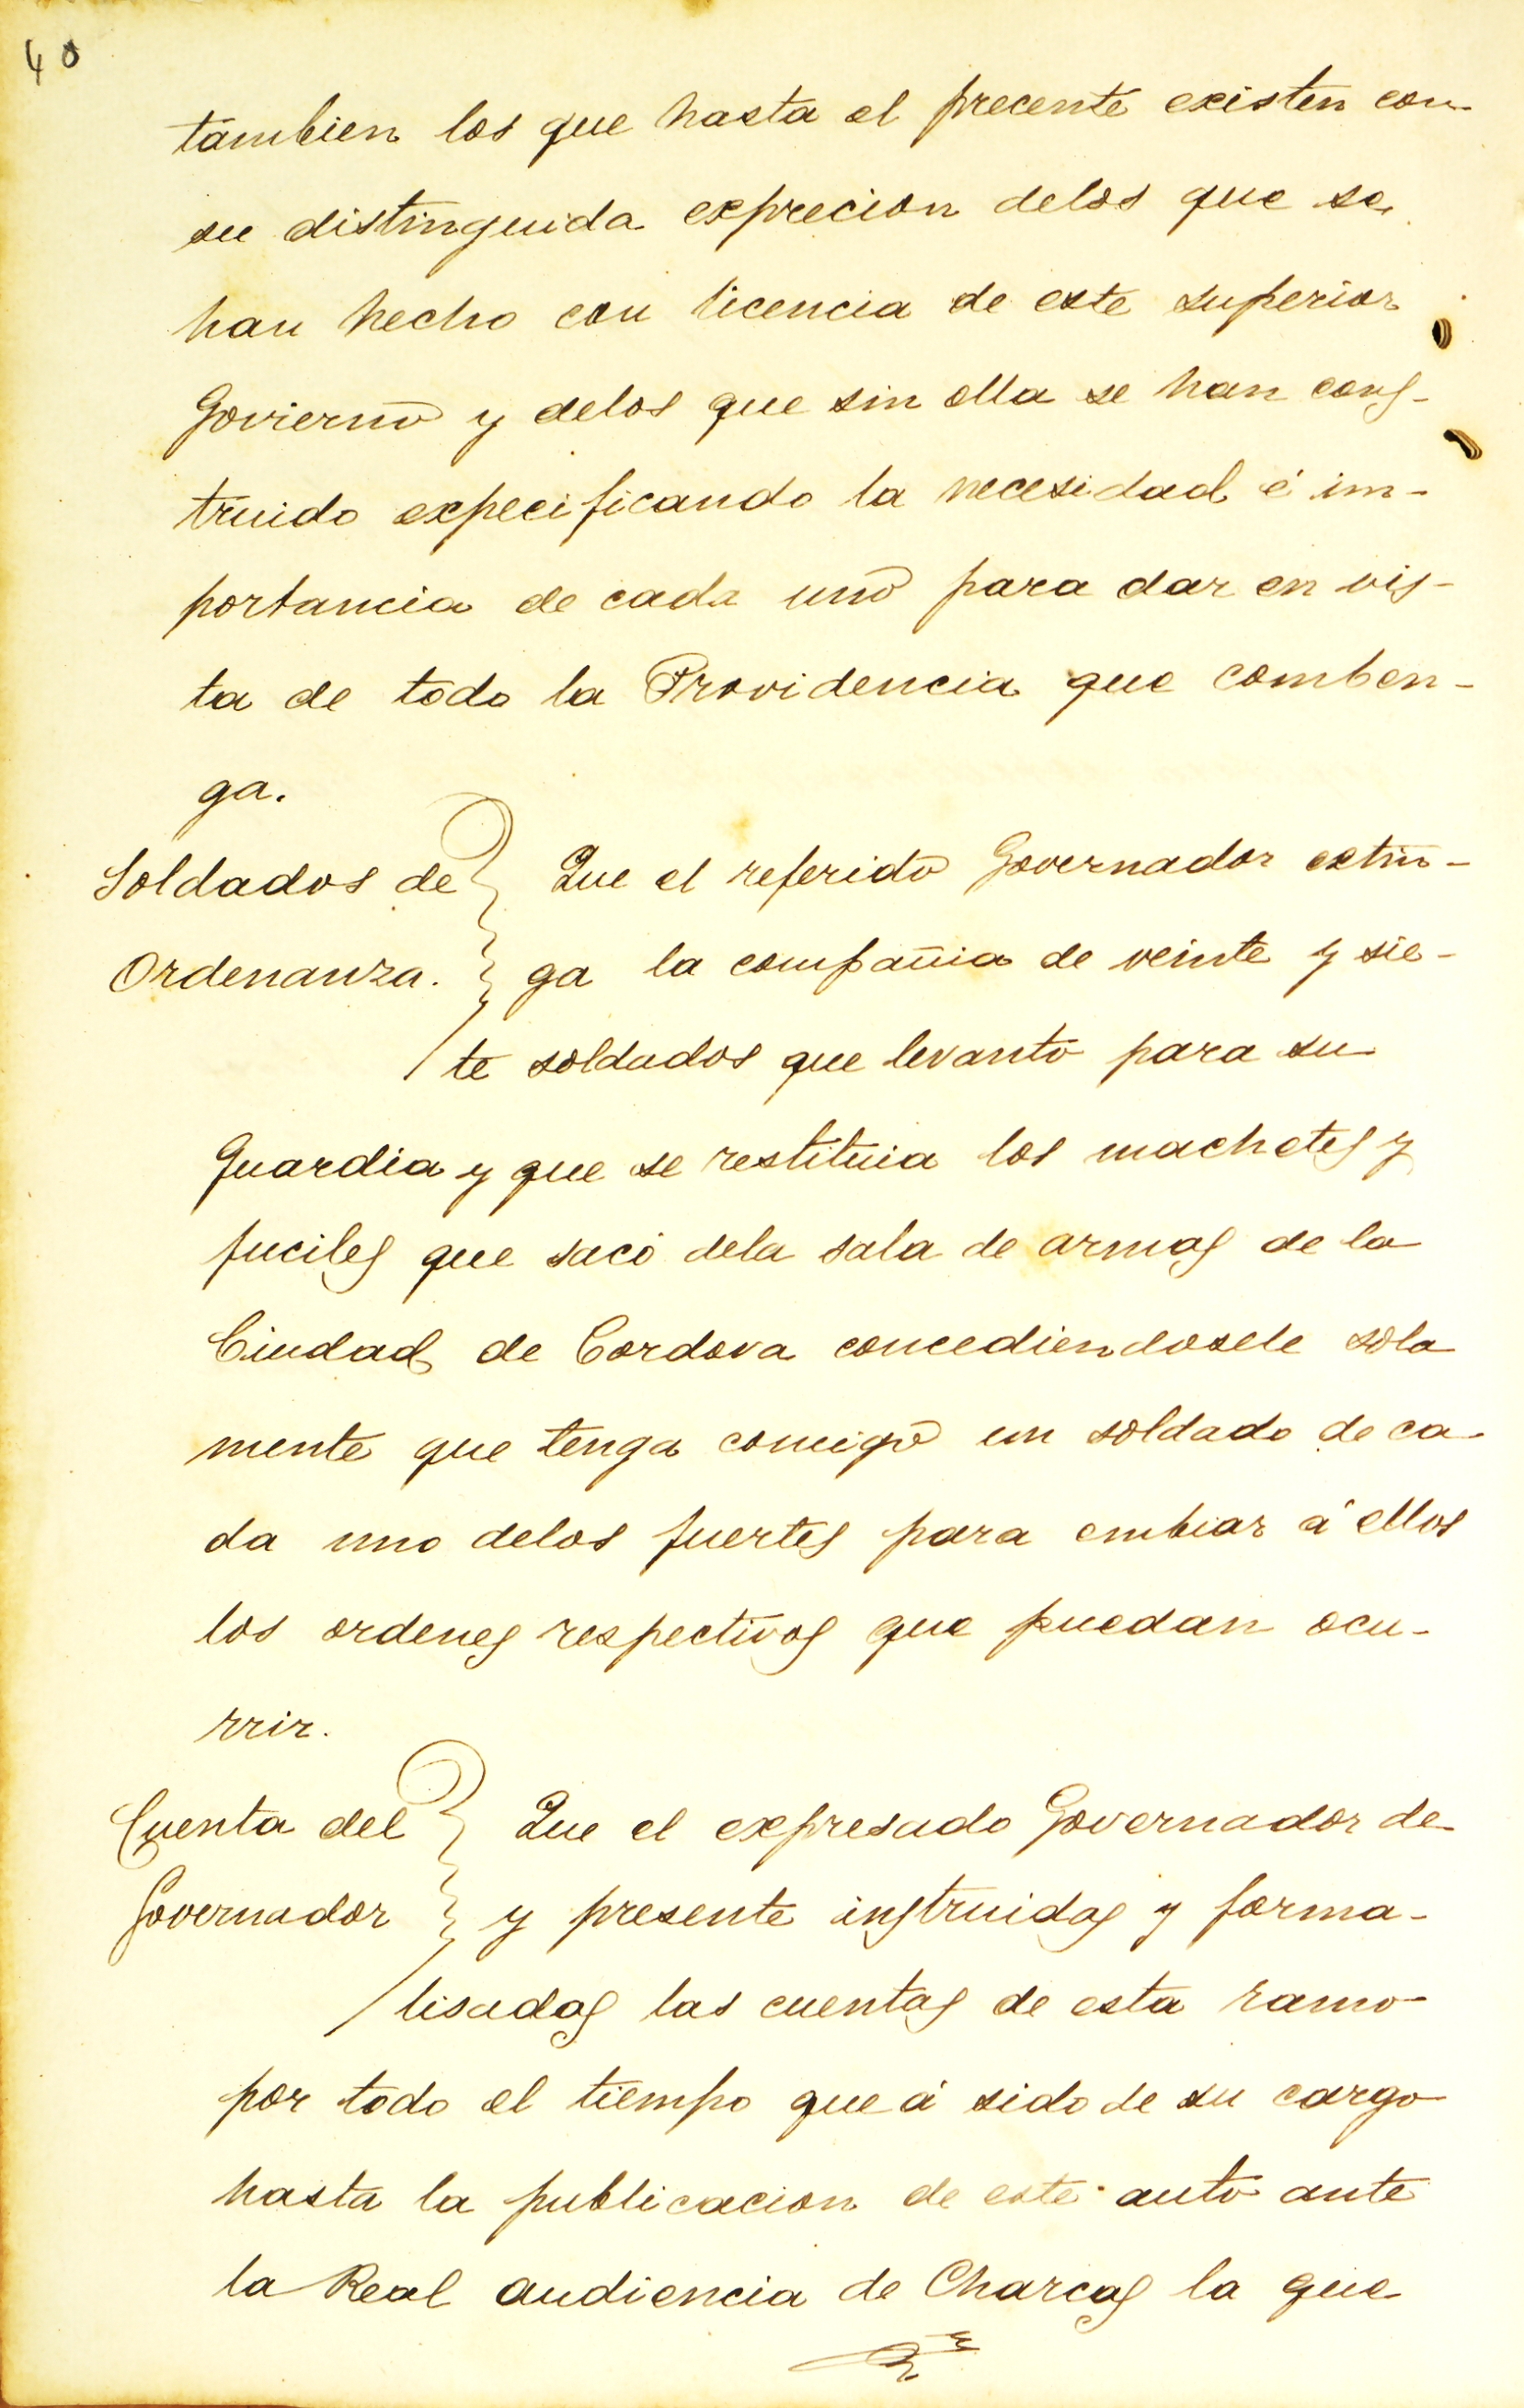 40
tambien los que hasta el precente existen con
su distinguida exprecion delos que se
han hecho con licencia de este superior
Govierno y delos que sin ella se han cons-
truido expecificando la necesidad é im-
portancia de cada uno para dar en vis-
ta de todo la Providencia que comben-
ga.
Soldados de
Ordenanza.
Que el referido Governador extin-
ga la compañia de veinte y sie-
te soldados que levantó para su
Guardia y que se restituia los machetes y
fuciles que sacó dela sala de armas de la
Ciudad de Cordova concediendosele sola
mente que tenga consigo un soldado de ca-
da uno delos fuertes para embiar á ellos
los ordenes respectivos que puedan ocu-
rrir.
Cuenta del
Governador
Que el expresado Governador de
y presente instruidas y forma-
lisadas las cuentas de esta ramo
por todo el tiempo que á sido de su cargo
hasta la publicacion de este auto ante
la Real audiencia de Charcas la que